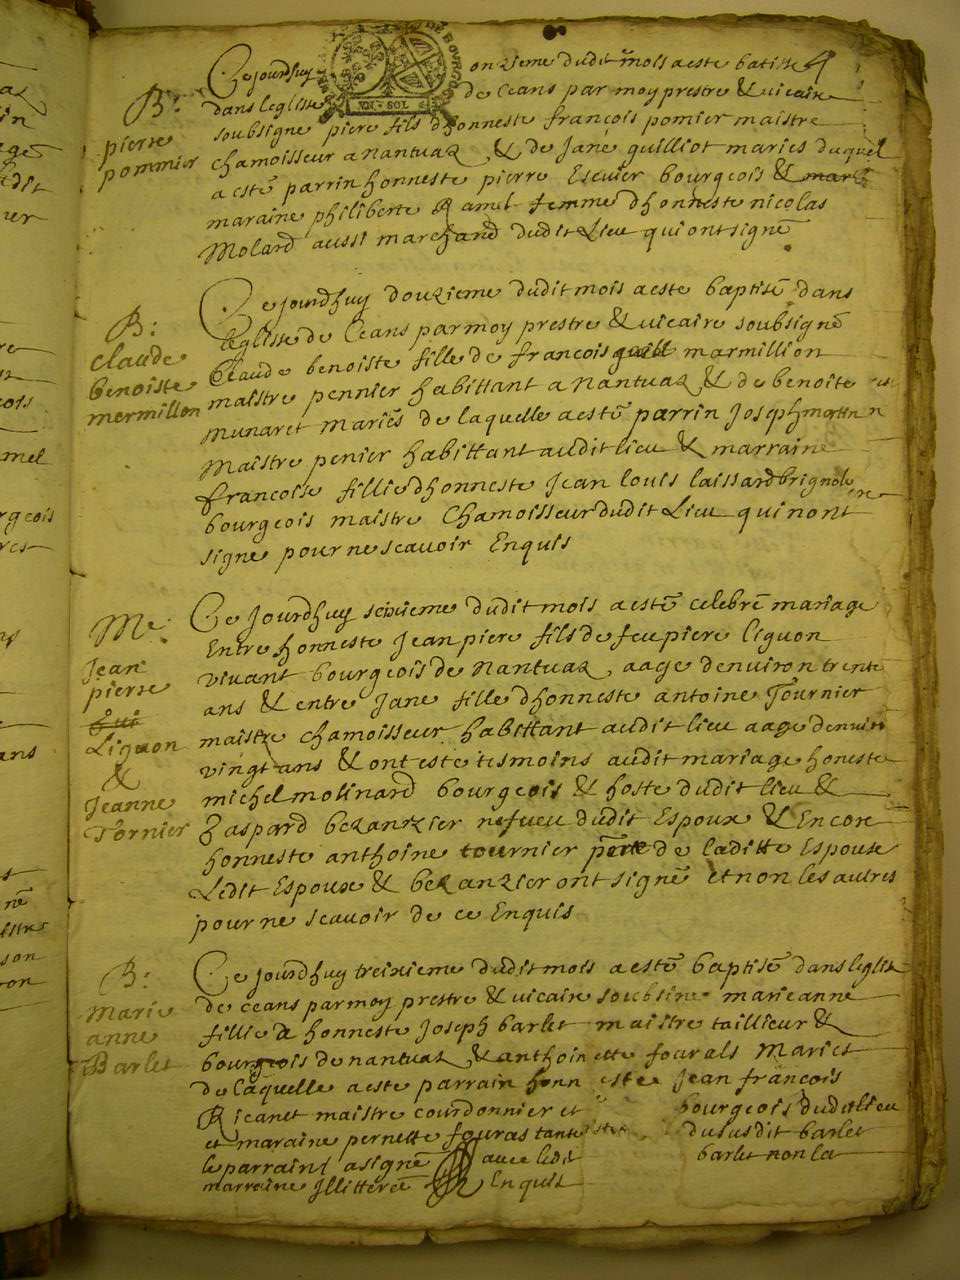 B:
pierre
pommier
Ce jourdhuy onzieme dudit mois a este batisé
dans leglise de Ceans par moy prestre & vicaire
soubsigne piere fils dhonneste françois pomier maistre
chamoisseur a nantuaz & de Jane guilliot mariés duquel
a esté parrin honneste pierre Escuier bourgeois &
maraine philiberte Ramel femme dhonneste nicolas
Molard aussi marchand dudit Lieu qui ont signé
B:
Claude
benoiste
mermillon
Ce jourdhuy douzieme dudit mois a este baptisé dans
leglisse de Ceans par moy prestre & vicaire soubsigné
Claude benoiste fille de francois marmillion
maistre pennier habittant a nantuaz & de benoite
munaret mariés de laquelle a esté parrin Joseph
Maistre penier habittant audit lieu & marraine
francoise fillie dhonneste Jean louis laissard
bourgeois maistre Chamoisseur dudit Lieu qui nont
signe pour ne scavoir Enquis
Me:
Jean
pierre
Liguon
&
Jeanne
Tornier
Ce Jourdhuy seixieme dudit mois a esté celebré mariage
Entre honneste Jean piere fils de feu piere liguon
vivant bourgeois de nantuaz, aage denviron trente
ans & entre Jane fille dhonneste antoine Tournier
maistre chamoisseur habittant audit lieu aage denviron
vingt ans & ont este tesmoins audit mariage honeste
michel molinard bourgeois & hoste dudit lieu &
gaspard bezanzier nefueu dudit Espoux & Encore
honneste anthoine tournier pere de laditte Espouse
Ledit Espoux & bezanzier ont signé et non les autres
pour ne scavoir de ce Enquis
B:
Marie
anne
Barlet
Ce jourdhuy treixieme dudit mois a esté baptisé dans leglise
de ceans par moy prestre & vicaire soubsine marieanne
fillie de honneste Joseph barlet maistre taillieur &
bourgeois de nantuaz & anthoinette fourals Mariés
de Laquelle a este parrain honneste Jean françois
Ricanet maistre courdonnier et bourgeois dudit lieu
et maraine pernette fouras tante dususdit barlet
le parrain a signé avec ledit barlet non la
marraine Illitteré Enquis